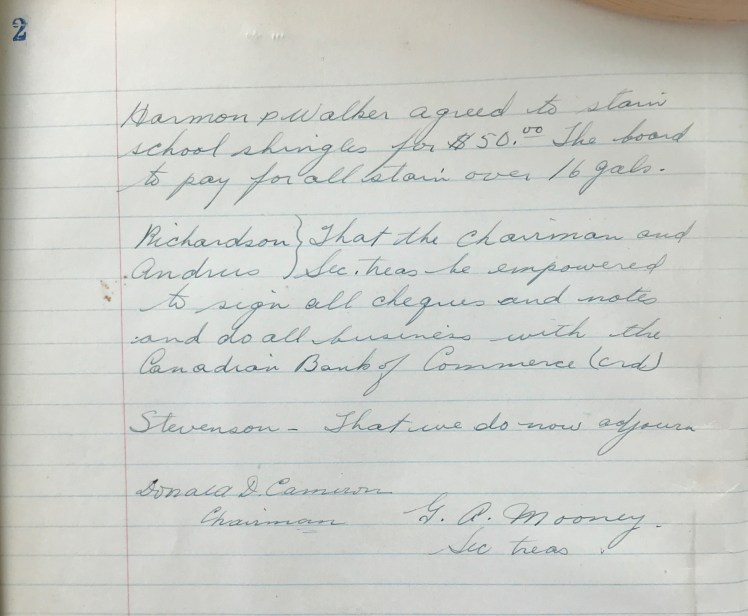 2
Harmon P Walker agreed to stain
school shingles for $50.00 The board
to pay for all stain over 16 gals.
Richardson } That the Chairman and
Andrus } Sec. treas be empowered
to sign all cheques and notes
and do all business with the
Canadian Bank of Commerce (crd)
Stevenson - That we do now adjourn
Donald D. Cameron
Chairman
G. A. Mooney.
Sec treas.